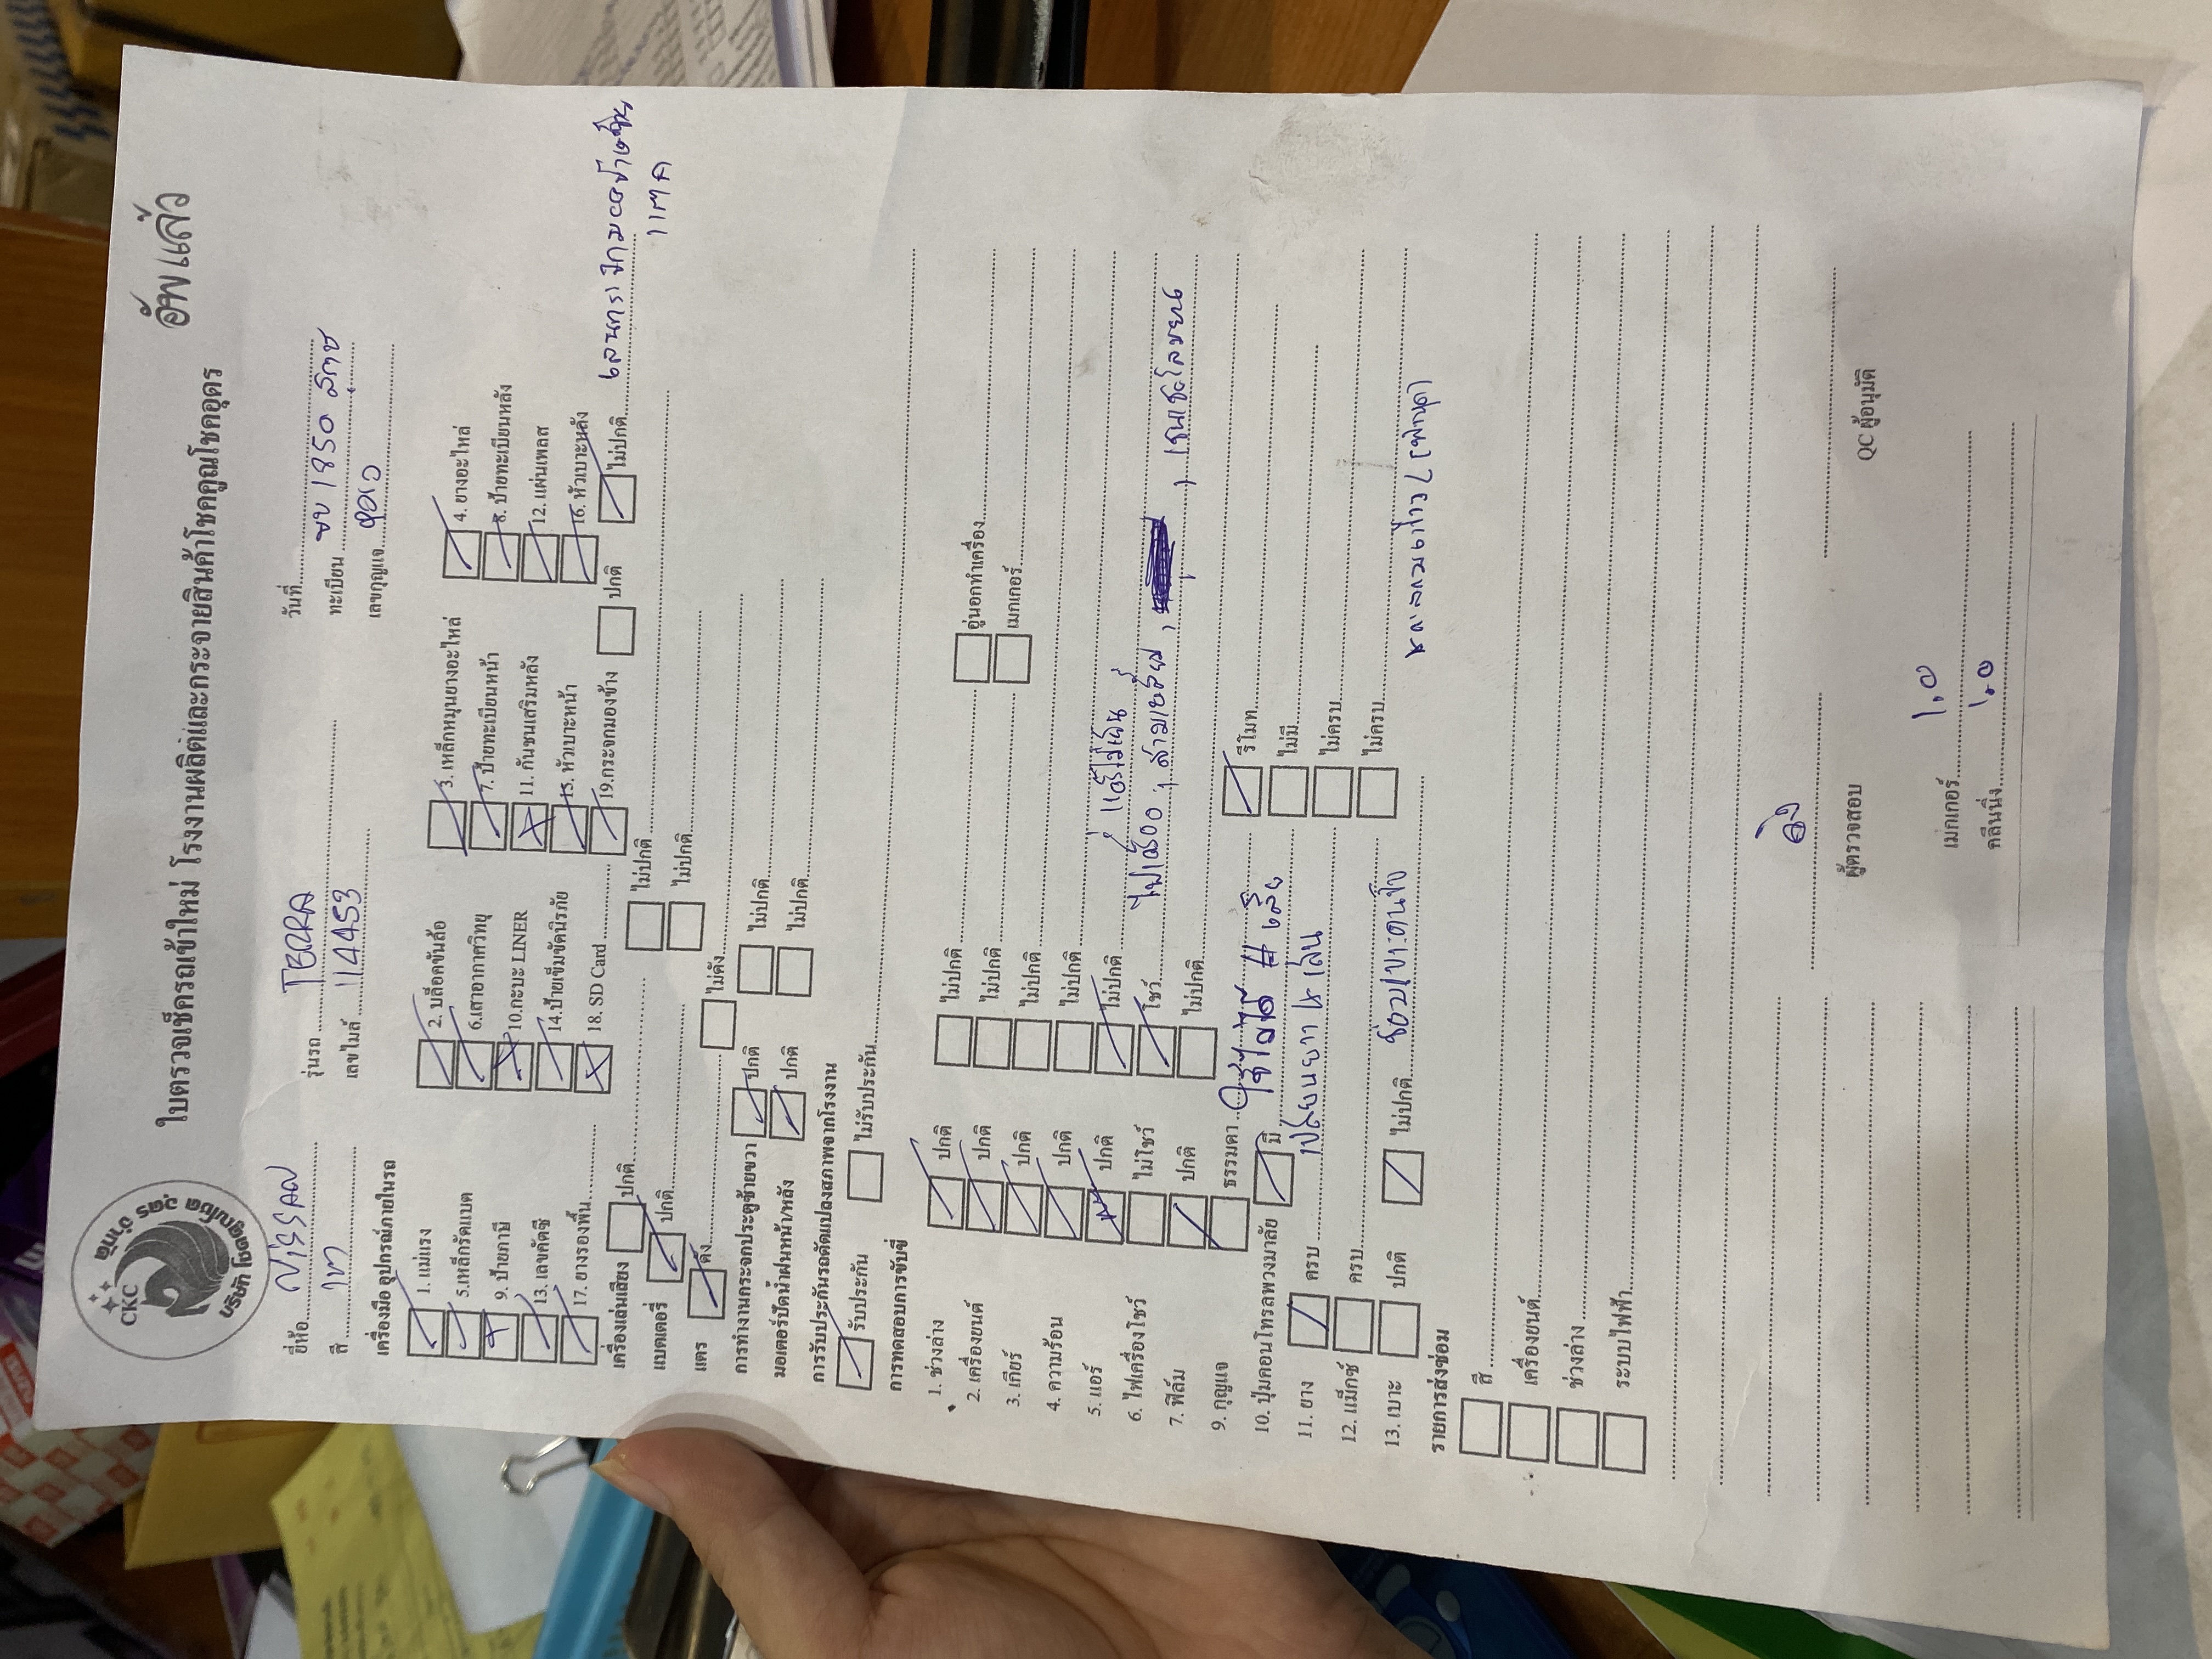 อัพแล้ว
CKC
บริษัท โชคคูณโชค อุดร จำกัด
ใบตรวจเช็ครถเข้าใหม่ โรงงานผลิตและกระจายสินค้าโชคคูณโชคอุดร
ยี่ห้อ NISSAN รุ่นรถ TERRA วันที่
สี เทา เลขไมล์ 114453 ทะเบียน ขบ 1950
เลขกุญแจ
เครื่องมือ อุปกรณ์ภายในรถ
1. แม่แรง 2. บล็อคขันล้อ 3. เหล็กหมุนยางอะไหล่ 4. ยางอะไหล่
5.เหล็กรัดแบต 6.เสาอากาศวิทยุ 7. ป้ายทะเบียนหน้า 8. ป้ายทะเบียนหลัง
9. ป้ายภาษี 10.กะบะ LINER 11. กันชนเสริมหลัง 12. แผ่นเพลส
13. เลขคัตซี 14.ป้ายเข็มขัดนิรภัย 15. หัวเบาะหน้า 16. หัวเบาะหลัง
17. ยางรองพื้น 18. SD Card 19.กระจกมองข้าง ปกติ ไม่ปกติ
เครื่องเล่นเสียง ปกติ ไม่ปกติ
แบตเตอรี่ ปกติ ไม่ปกติ
แตร ดัง ไม่ดัง
การทำงานกระจกประตูซ้ายขวา ปกติ ไม่ปกติ
มอเตอร์ปัดน้ำฝนหน้า/หลัง ปกติ ไม่ปกติ
การรับประกันรถดัดแปลงสภาพจากโรงงาน
รับประกัน ไม่รับประกัน
การทดสอบการขับขี่
1. ช่วงล่าง ปกติ ไม่ปกติ
2. เครื่องยนต์ ปกติ ไม่ปกติ อู่นอกทำเครื่อง
3. เกียร์ ปกติ ไม่ปกติ เมกเกอร์
4. ความร้อน ปกติ ไม่ปกติ
5. แอร์ ปกติ ไม่ปกติ แอร์ไม่เย็น
6. ไฟเครื่องโชว์ ไม่โชว์ โชว์
7. ฟิล์ม ปกติ ไม่ปกติ
9. กุญแจ ธรรมดา รีโมท
10. ปุ่มคอนโทรลพวงมาลัย มี ไม่มี
11. ยาง ครบ เปลี่ยนยาง 4 เส้น ไม่ครบ
12. แม็กซ์ ครบ ไม่ครบ
13. เบาะ ปกติ ไม่ปกติ ซ่อมเบาะคนขับ
รายการส่งซ่อม
สี
เครื่องยนต์
ช่วงล่าง
ระบบไฟฟ้า
ผู้ตรวจสอบ QC ผู้อนุมัติ
เมกเกอร์
คลีนนิ่ง